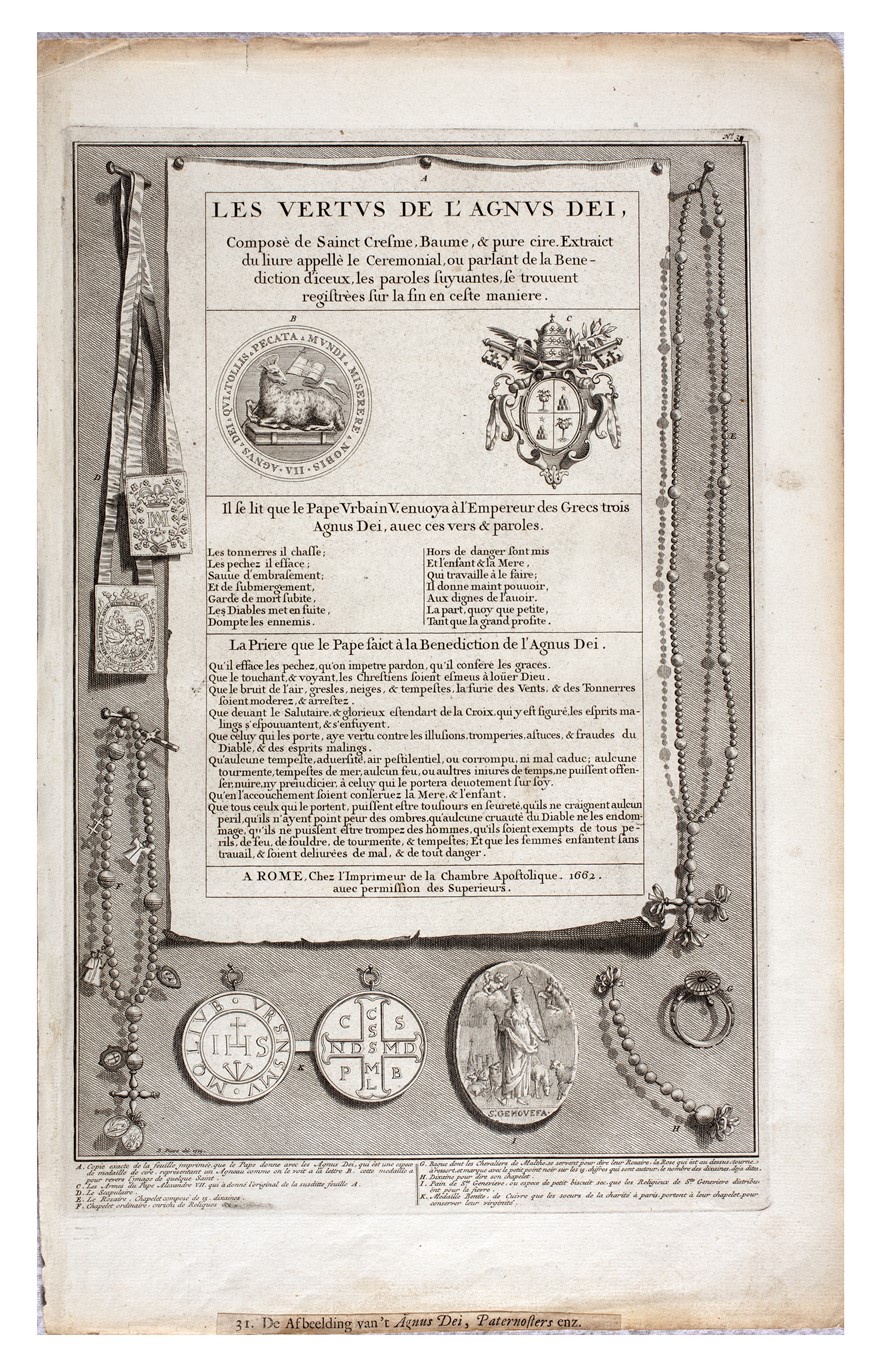 Nº. 31.
A
LES VERTVS DE L'AGNVS DEI,
Composè de Sainct Creſme, Baume, & pure cire. Extraict
du liure appellè le Ceremonial, ou parlant de la Bene-
diction d'iceux, les paroles ſuyuantes, ſe trouuent
regiſtrèes ſur la fin en ceſte maniere.
B
C
AGNVS · DEI · QVI · TOLLIS · PECATA · MVNDI · MISERERE · NOBIS · VII ·
D
E
Il ſe lit que le Pape Vrbain V. enuoya à l'Empereur des Grecs trois
Agnus Dei, auec ces vers & paroles.
Les tonnerres il chaſſe;
Les pechez il efface;
Sauue d'embraſement;
Et de ſubmergement,
Garde de mort ſubite,
Les Diables met en fuite,
Dompte les ennemis.
Hors de danger ſont mis
Et l'enfant & la Mere,
Qui travaille à le faire;
Il donne maint pouuoir,
Aux dignes de l'auoir.
La part, quoy que petite,
Tant que la grand profite.
La Priere que le Pape faict à la Benediction de l'Agnus Dei.
Qu'il efface les pechez, qu'on impetre pardon, qu'il confére les graces.
Que le touchant, & voyant, les Chreſtiens ſoient eſmeus à loüer Dieu.
Que le bruit de l'air, greſles, neiges, & tempeſtes, la furie des Vents, & des Tonnerres
ſoient moderez, & arreſtez.
Que deuant le Salutaire, & glorieux eſtendart de la Croix, qui y eſt figuré, les eſprits ma-
lings s'eſpouuantent, & s'enfuyent.
Que celuy qui les porte, aye vertu contre les illuſions, tromperies, aſtuces, & fraudes du
Diable, & des eſprits malings.
Qu'aulcune tempeſte, aduerſité, air peſtilentiel, ou corrompu, ni mal caduc; aulcune
tourmente, tempeſtes de mer, aulcun feu, ou aultres iniures de temps, ne puiſſent offen-
ſer, nuire, ny preiudicier, à celuy qui le portera deuotement ſur ſoy.
Qu'en l'accouchement ſoient conſeruez la Mere, & l'enfant.
Que tous ceulx qui le portent, puiſſent eſtre touſiours en ſeureté, qu'ils ne craignent aulcun
peril, qu'ils n'ayent point peur des ombres, qu'aulcune cruauté du Diable ne les endom-
mage, qu'ils ne puiſſent eſtre trompez des hommes, qu'ils ſoient exempts de tous pe-
rils, de feu, de fouldre, de tourmente, & tempeſtes; Et que les femmes enfantent ſans
trauail, & ſoient deliurées de mal, & de tout danger.
A ROME, Chez l'Imprimeur de la Chambre Apoſtolique. 1662.
auec permiſſion des Superieurs.
F
MOLIVB · VRSNSMV
IHS
K
C S
C S S
N D S M D
M
P L B
S. GENOVEFA.
I
H
G
A. Copie exacte de la feuille imprimée, que le Pape donne avec les Agnus Dei, qui est une espece
de medaille de cire, représentant un Agneau comme on le voit à la lettre B. cette medaille a
pour revers l'image de quelque Saint.
C. Les Armes du Pape Alexandre VII. qui a donné l'original de la susditte feuille A.
D. Le Scapulaire.
E. Le Rosaire, Chapelet composé de 15. dixaines.
F. Chapelet ordinaire, enrichi de Reliques &c.
G. Bague dont les Chevaliers de Malthe se servent pour dire leur Rosaire; la Rose qui est au dessus, tourne
à ressort, et marque avec le petit point noir sur les 15. chifres qui sont autour, le nombre des dixaines, deja dites.
H. Dixaine pour dire son chapelet.
I. Pain de Ste Genevieve, ou espece de petit biscuit sec, que les Religieux de Ste Genevieve distribu-
ent pour la fievre.
K. Medaille Benite, de Cuivre que les sœurs de la charité à paris, portent à leur chapelet, pour
conserver leur virginité.
31. De Afbeelding van't Agnus Dei, Paternoſters enz.